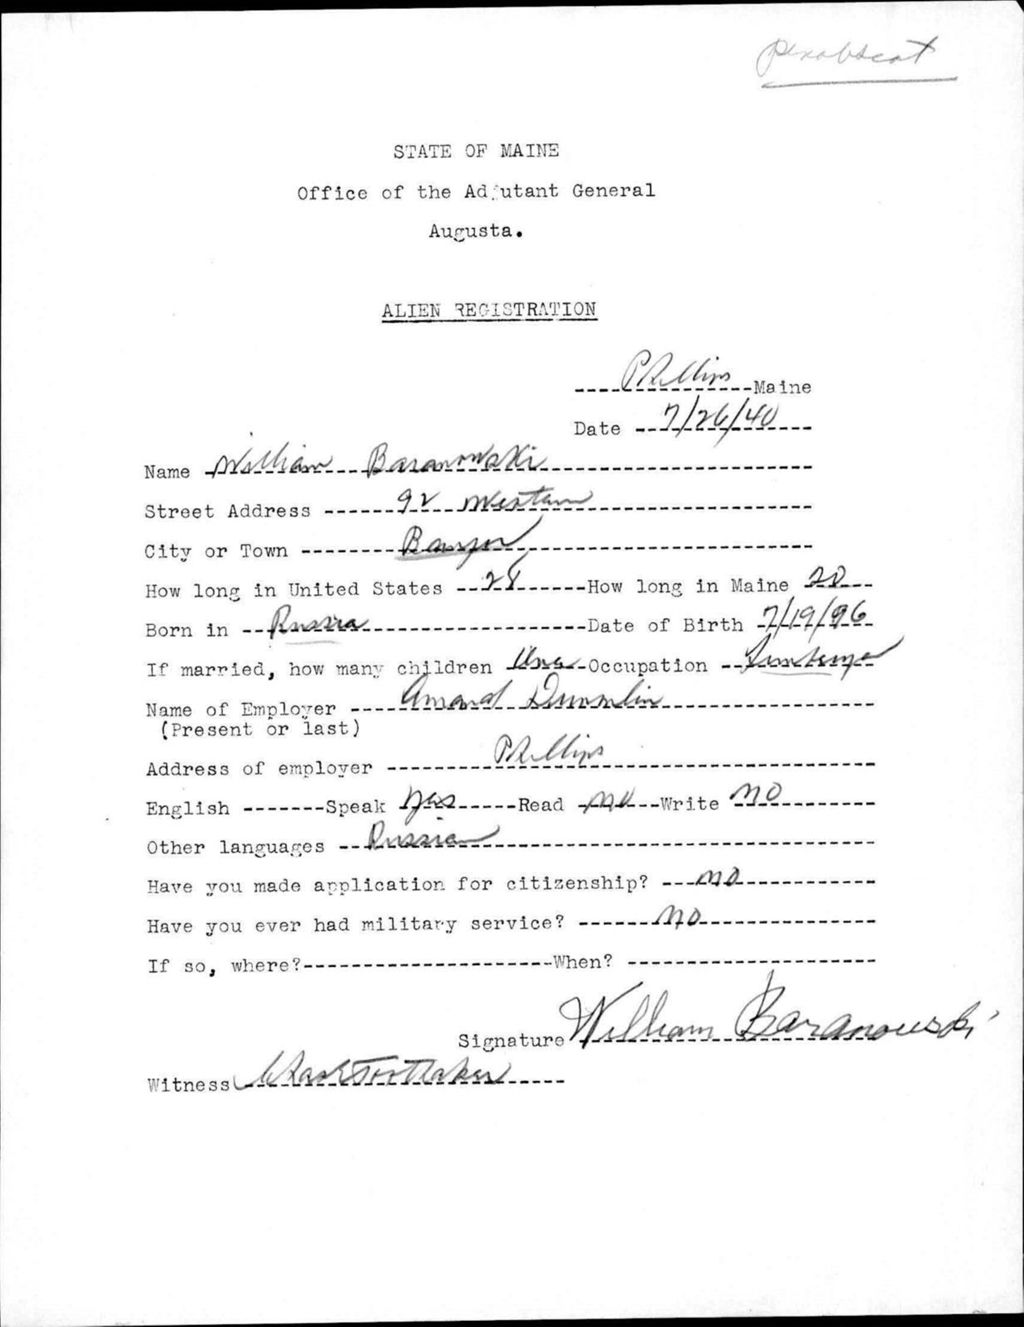 Penobscot
STATE OF MAINE
Office of the Adjutant General
Augusta.
ALIEN REGISTRATION
Phillips Maine
Date 7/26/40
Name William Baranowski
Street Address 92 Western
City or Town Bangor
How long in United States 28 How long in Maine 20
Born in Russia Date of Birth 7/19/96
If married, how many children One Occupation
Name of Employer Amand
(Present or last)
Address of employer Phillips
English Speak Yes Read no Write no
Other languages Russian
Have you made application for citizenship? no
Have you ever had military service? no
If so, where? When?
Signature William Baranowski
Witness